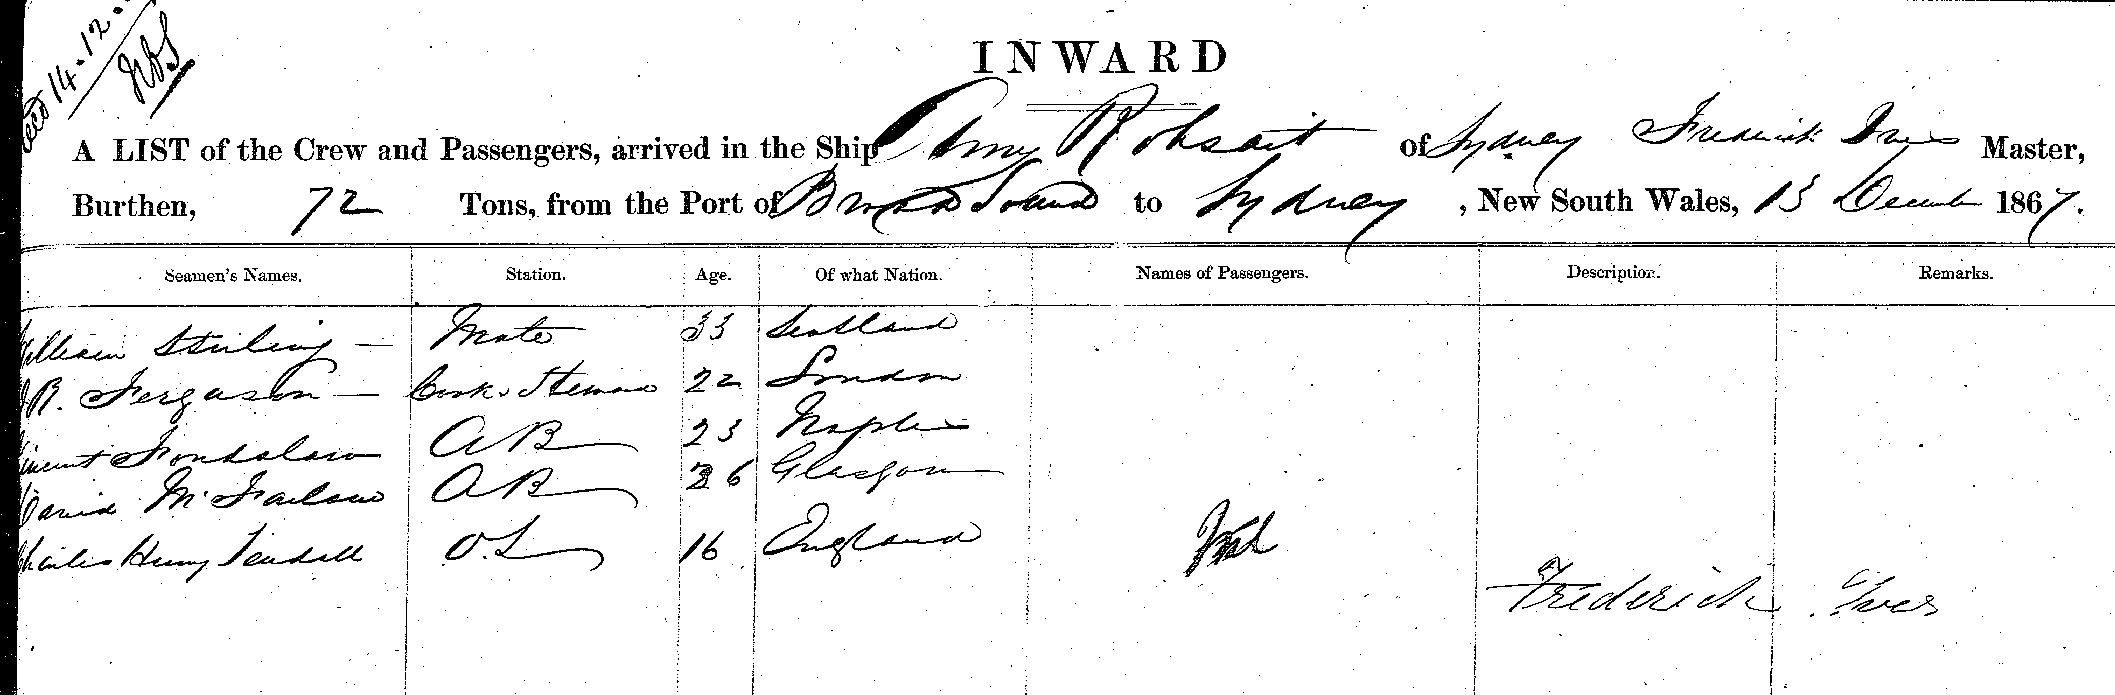 14.12.
INWARD
A LIST of the Crew and Passengers, arrived in the Ship Amy Robsart of Sydney Frederick Ives Master,
Burthen, 72 Tons, from the Port of Broad Sound to Sydney, New South Wales, 13 December 1867.
Seamen's Names. Station. Age. Of what Nation. Names of Passengers. Description. Remarks.
William Stirling — Mate 33 Scotland
R. Ferguson — Cook & Steward 22 London
Vincent AB 23 Naples
David McFarlane AB 26 Glasgow
Charles Henry Tendall O.S 16 England
Frederick Ives